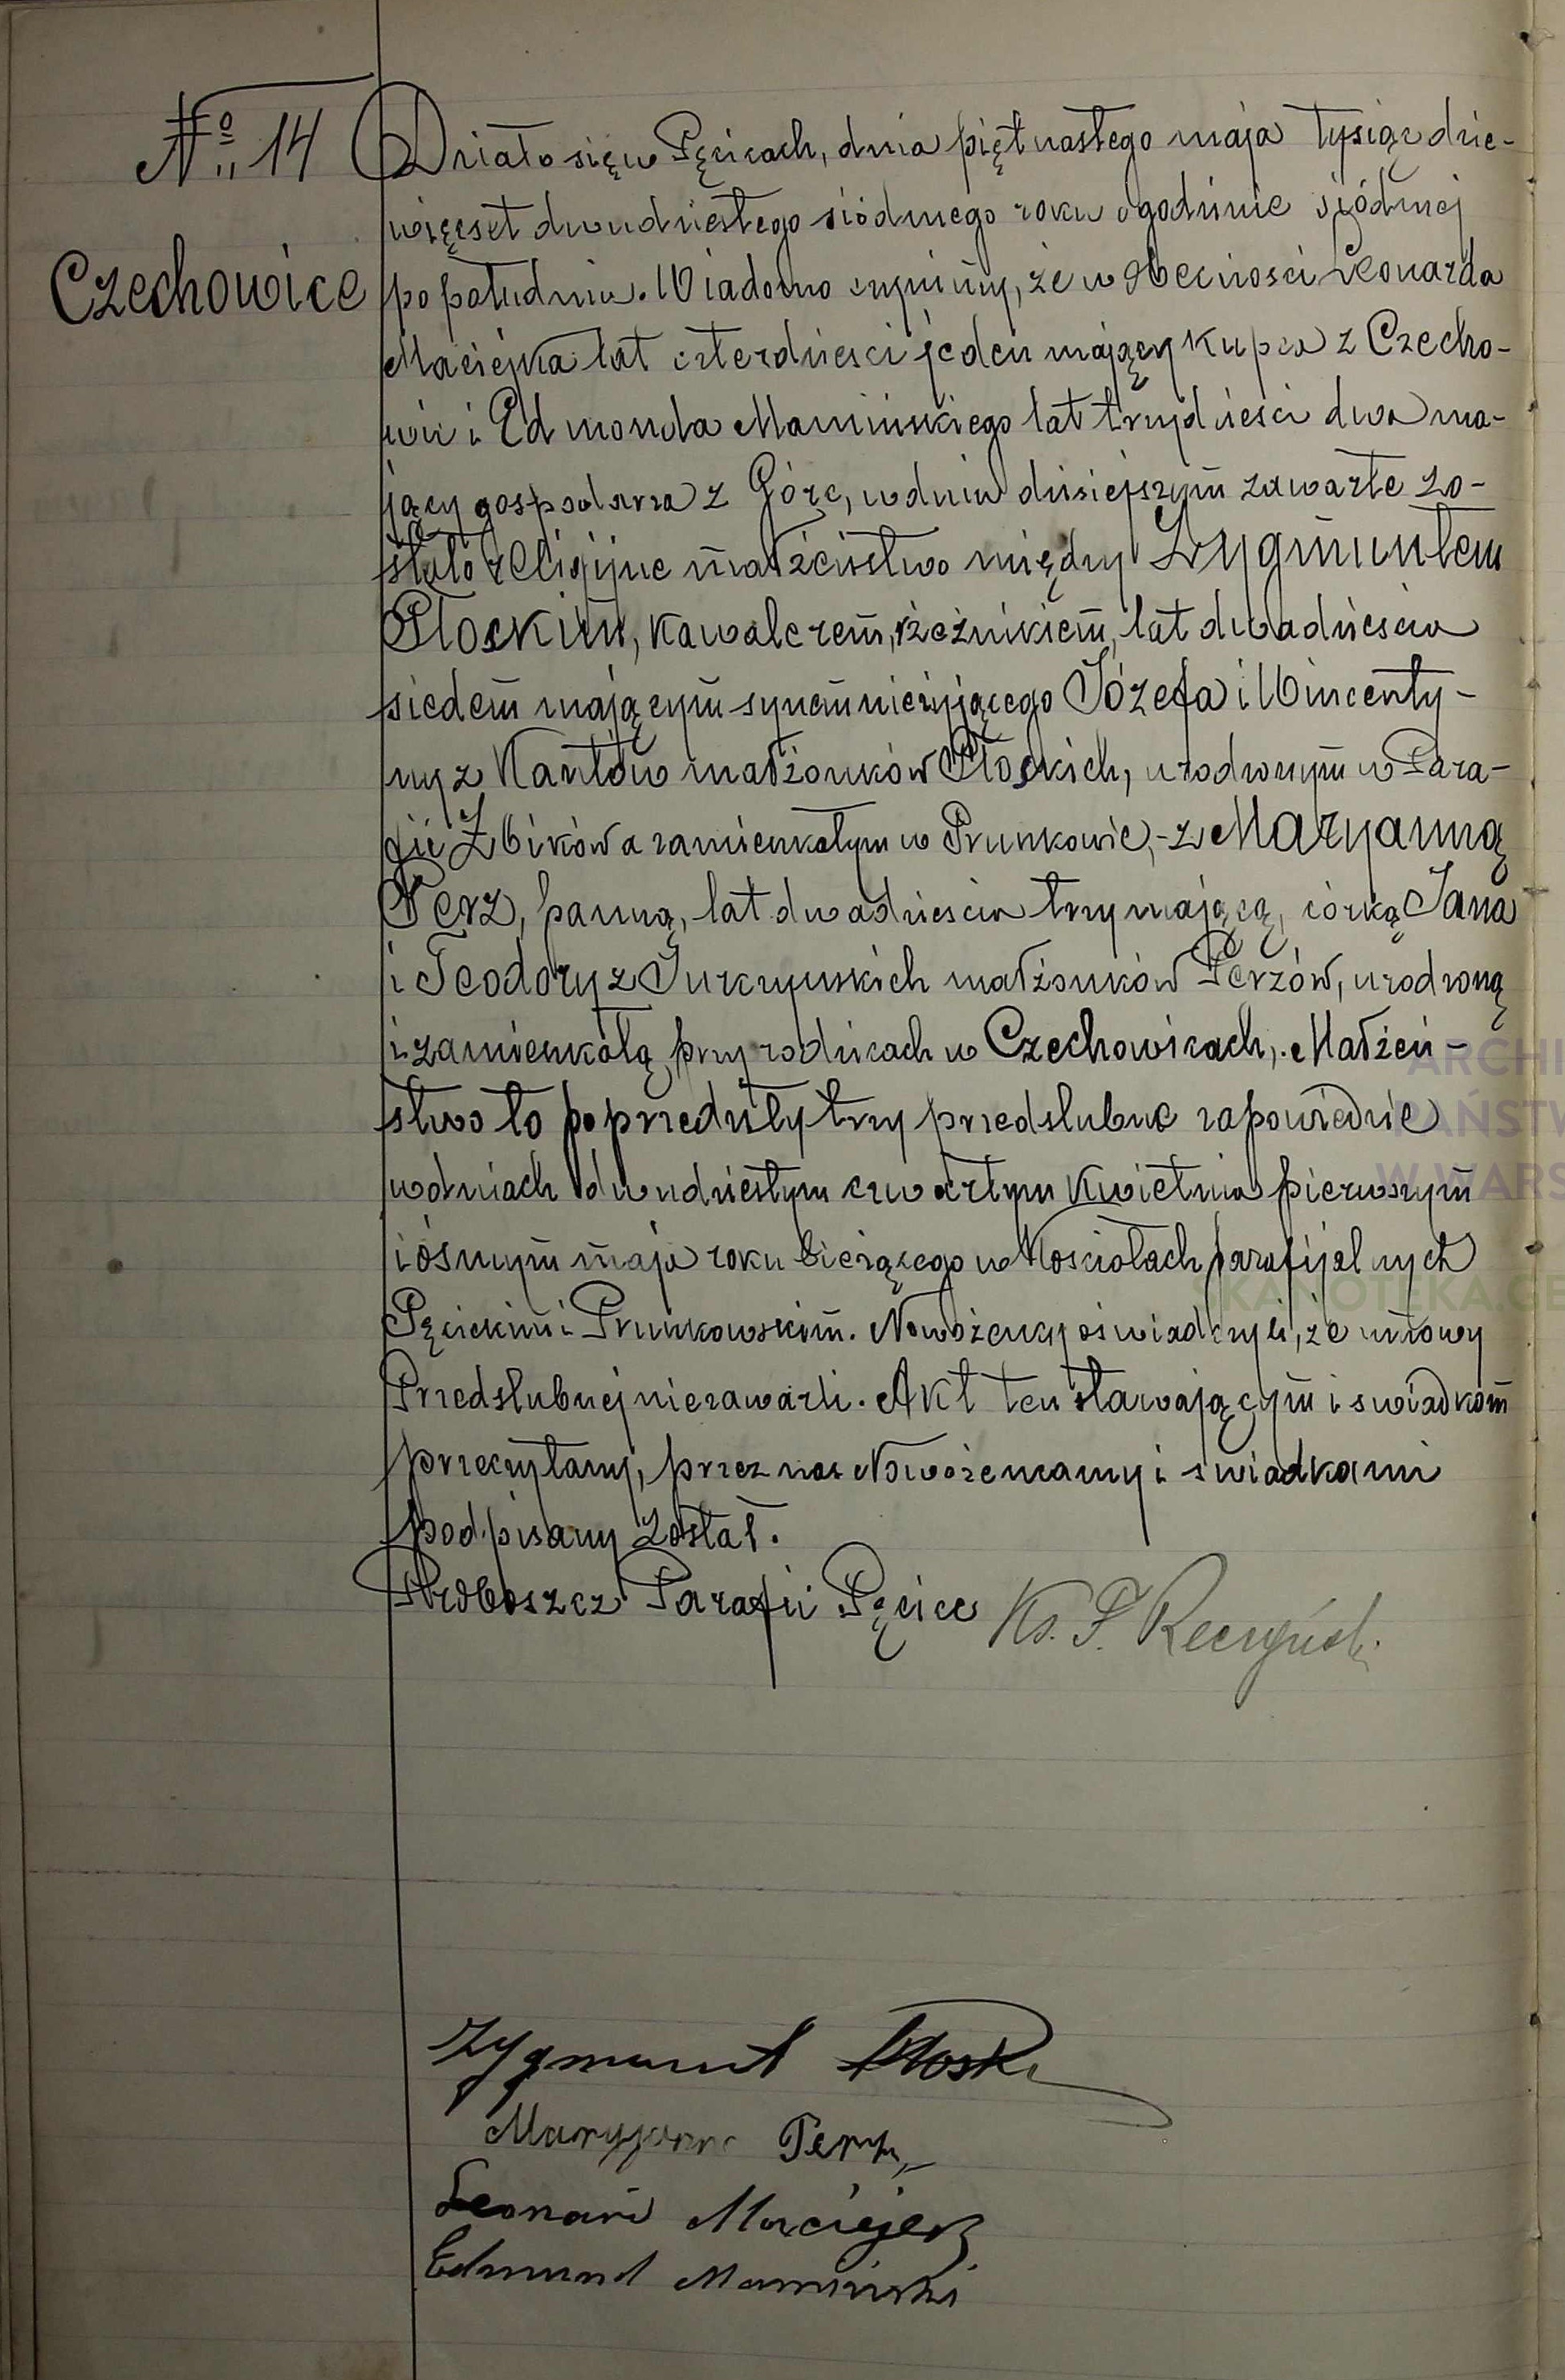 No 14
Czechowice
Działo się w Pęcicach, dnia piętnastego maja tysiąc dzie-
więcset dwudziestego siódmego roku o godzinie siódmej
po południu. Wiadomo czynimy, że w obecności Leonarda
Maciejka lat czterdzieści jeden mający Kupca z Czecho-
wic i Edmonda Mamińskiego lat trzydzieści dwa ma-
jący gospodarza z Górc, w dniu dzisiejszym zawarte zo-
stało religijne małżeństwo między Zygmuntem
Płockim, kawalerem, rzeźnikiem, lat dwadzieścia
siedem mającym synem nieżyjącego Józefa i Wincenty-
ny z Kantów małżonków Płockich, urodzonym w Para-
fii Żbików a zamieszkałym w Pruszkowie, - z Maryanną
Perz, panną, lat dwadzieścia trzy mającą, córką Jana
i Teodory z Jurczyńskich małżonków Perzów, urodzoną
i zamieszkałą przy rodzicach w Czechowicach. Małżeń-
stwo to poprzedziły trzy przedślubne zapowiedzie
w dniach dwudziestym czwartym Kwietnia pierwszym
i ósmym maja roku bieżącego w Kościołach parafijalnych
Pęcickim i Pruszkowskim. Nowożeńcy oświadczyli, że umowy
Przedślubnej nie zawarli. Akt ten stawającym i świadkom
przeczytany, przez nas Nowożeńcamy i świadkami
podpisany został.
Proboszcz Parafii Pęcice Ks. F.
Zygmunt Płoski
Maryjanna Perz
Leonard Maciejek
Edmund Mamiński
ARCHI
PAŃSTW
W WARS
SKANOTEKA.GE